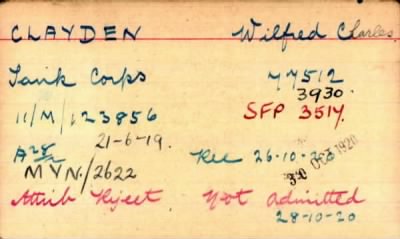 CLAYDEN Wilfred Charles.
Tank Corps 77512
3930.
11/M/123856 SFP 3517.
21-6-19.
Rec 26-10-20 OCT 1920
MVN/2622
Attrib Reject Not admitted
28-10-20